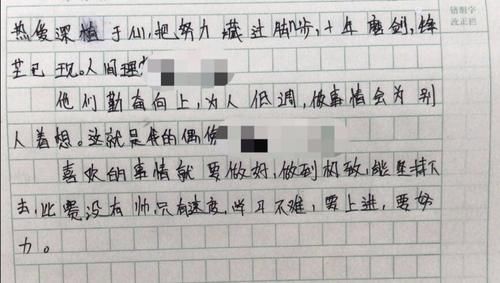 热爱深植于心,把努力藏进脚步,十年磨剑,锋
芒已现。人间理
他们勤奋向上,为人低调,做事情会为别
人着想。这就是我的偶像
喜欢的事情就要做好,做到极致,能坚持下
去,比赛没有帅,只有速度,学习不难,要上进,要努
力。
错别字
改正栏